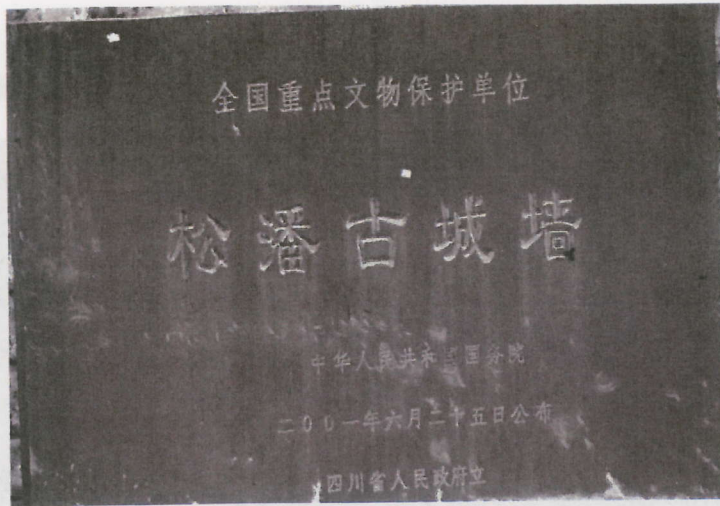 全国重点文物保护单位
松潘古城墙
中华人民共和国国务院
二00一年六月二十五日公布
四川省人民政府立